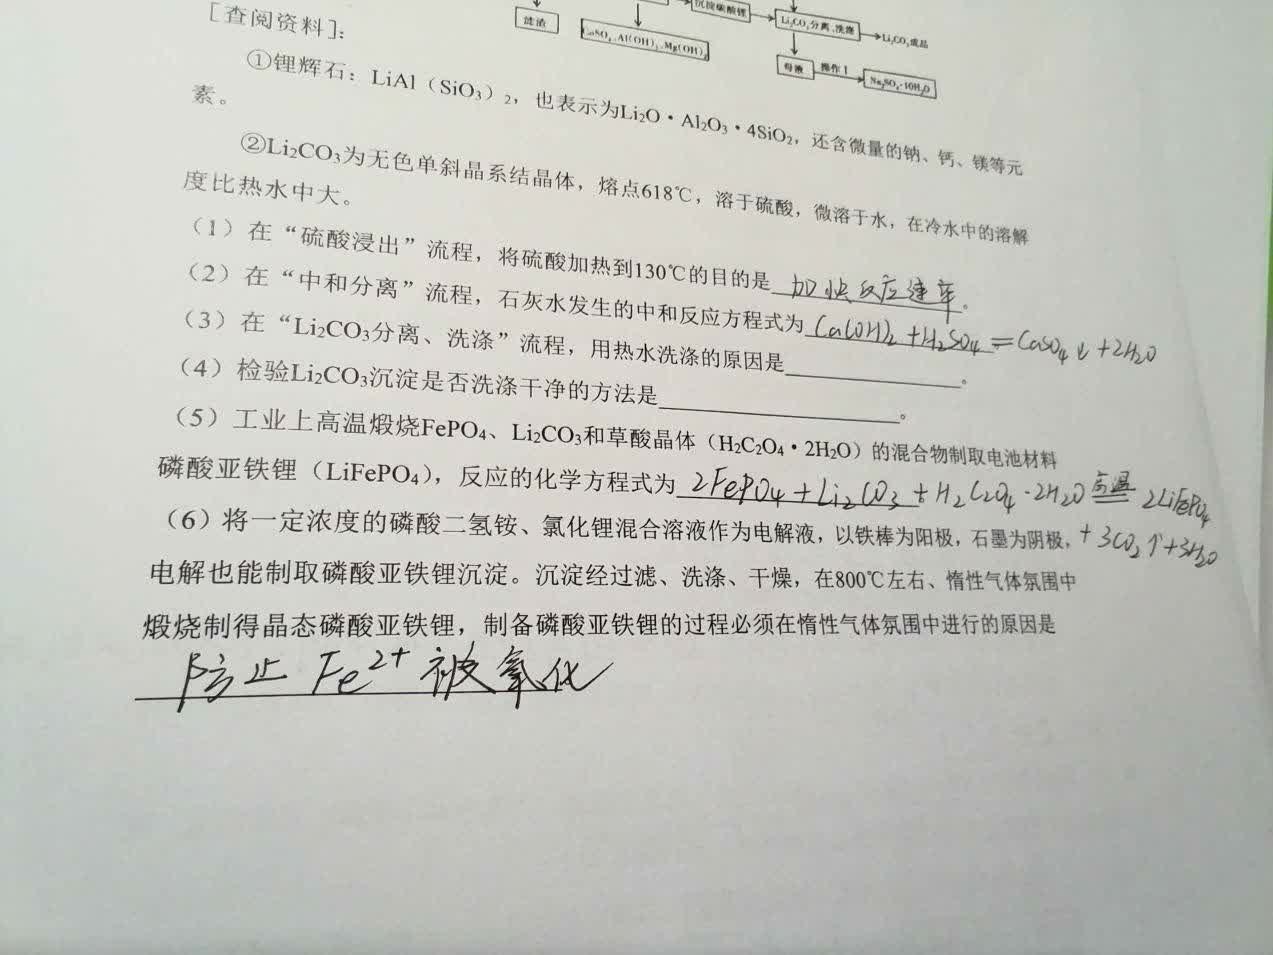 沉淀碳酸锂
Li₂CO₃分离、洗涤
Li₂CO₃成品
滤渣
CaSO₄、Al(OH)₃、Mg(OH)₂
母液
操作1
Na₂SO₄·10H₂O
[查阅资料]:
①锂辉石：LiAl（SiO₃）₂，也表示为Li₂O·Al₂O₃·4SiO₂，还含微量的钠、钙、镁等元
素。
②Li₂CO₃为无色单斜晶系结晶体，熔点618℃，溶于硫酸，微溶于水，在冷水中的溶解
度比热水中大。
（1）在“硫酸浸出”流程，将硫酸加热到130℃的目的是 加快反应速率。
（2）在“中和分离”流程，石灰水发生的中和反应方程式为 Ca(OH)₂+H₂SO₄=CaSO₄↓+2H₂O
（3）在“Li₂CO₃分离、洗涤”流程，用热水洗涤的原因是____________。
（4）检验Li₂CO₃沉淀是否洗涤干净的方法是____________。
（5）工业上高温煅烧FePO₄、Li₂CO₃和草酸晶体（H₂C₂O₄·2H₂O）的混合物制取电池材料
磷酸亚铁锂（LiFePO₄），反应的化学方程式为 2FePO₄+Li₂CO₃+H₂C₂O₄·2H₂O 高温═ 2LiFePO₄
+3CO₂↑+3H₂O
（6）将一定浓度的磷酸二氢铵、氯化锂混合溶液作为电解液，以铁棒为阳极，石墨为阴极，
电解也能制取磷酸亚铁锂沉淀。沉淀经过滤、洗涤、干燥，在800℃左右、惰性气体氛围中
煅烧制得晶态磷酸亚铁锂，制备磷酸亚铁锂的过程必须在惰性气体氛围中进行的原因是
防止Fe²⁺被氧化